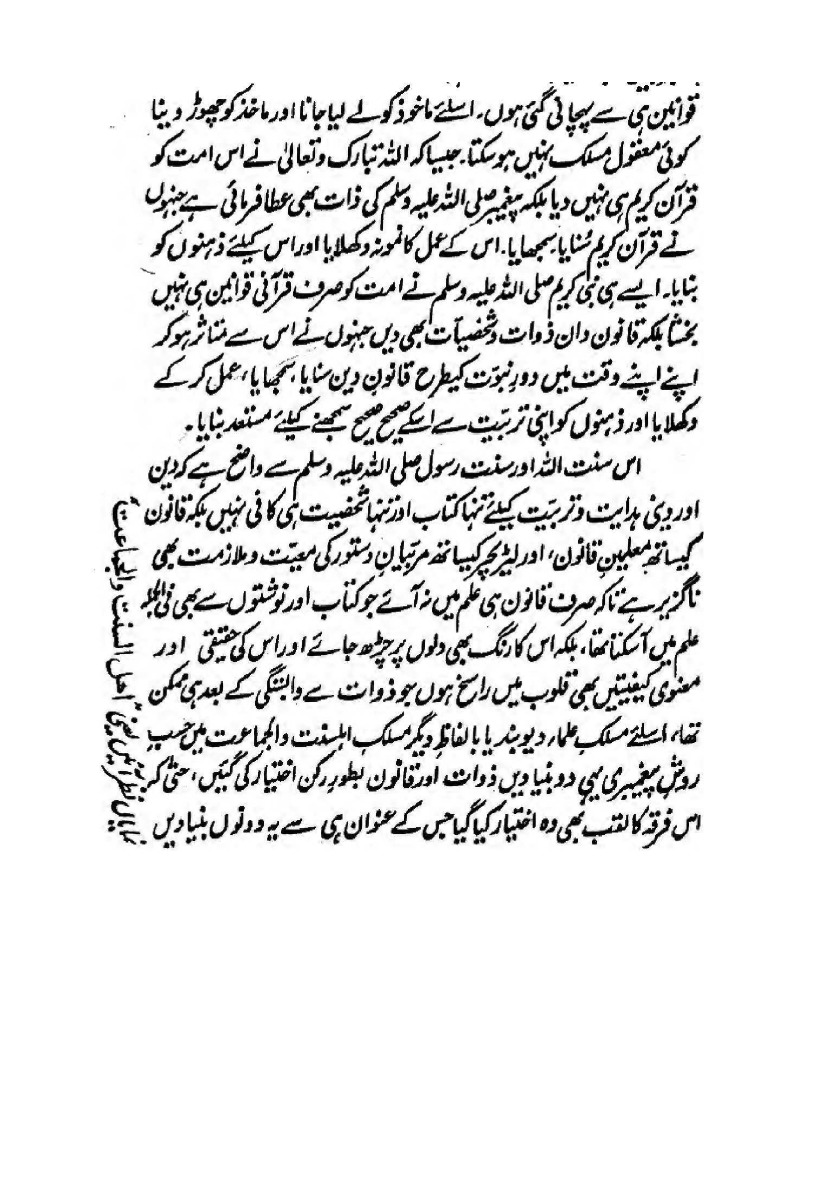 قوانین ہی سے پہچانی گئی ہوں۔ اسلئے ماخوذ کو لے لیا جانا اور ماخذ کو چھوڑ دینا
کوئی معقول مسلک نہیں ہو سکتا۔ جیسا کہ اللہ تبارک و تعالیٰ نے اس امت کو
قرآن کریم ہی نہیں دیا بلکہ پیغمبر صلی اللہ علیہ وسلم کی ذات بھی عطا فرمائی ہے جنہوں
نے قرآن کریم سُنایا۔ سمجھایا۔ اس کے عمل کا نمونہ دکھلایا اور اس کیلئے ذہنوں کو
بنایا۔ ایسے ہی نبی کریم صلی اللہ علیہ وسلم نے امت کو صرف قرآنی قوانین ہی نہیں
بخشا بلکہ قانون دان ذوات و شخصیات بھی دیں جنہوں نے اس سے متاثر ہو کر
اپنے اپنے وقت میں دورِ نبوّت کیطرح قانونِ دین سنایا، سمجھایا، عمل کر کے
دکھلایا اور ذہنوں کو اپنی تربیّت سے اسکے صحیح صحیح سمجھنے کیلئے مستعد بنایا۔
اس سنت اللہ اور سنت رسول صلی اللہ علیہ وسلم سے واضح ہے کہ دین
اور دینی ہدایت و تربیّت کیلئے تنہا کتاب اور تنہا شخصیت ہی کافی نہیں بلکہ قانون
کیساتھ معلمینِ قانون، اور لیٹریچر کیساتھ مربّیانِ دستور کی معیّت و ملازمت بھی
ناگزیر ہے تاکہ صرف قانون ہی علم میں نہ آئے جو کتاب اور نوشتوں سے بھی فی الجملہ
علم میں آ سکتا تھا، بلکہ اس کا رنگ بھی دلوں پر چڑھ جائے اور اس کی حقیقی اور
معنوی کیفیتیں بھی قلوب میں راسخ ہوں جو ذوات سے وابستگی کے بعد ہی ممکن
تھا، اسلئے مسلک علماء دیوبند یا بالفاظِ دیگر مسلک اہلسنت والجماعت میں حسبِ
روشِ پیغمبری یہی دو بنیادیں ذوات اور قانون بطورِ رکن اختیار کی گئیں، حتّٰی کہ
اس فرقہ کا لقب بھی وہ اختیار کیا گیا جس کے عنوان ہی سے یہ دونوں بنیادیں
نمایاں نظر آئیں یعنی "اھل السنت والجماعت"